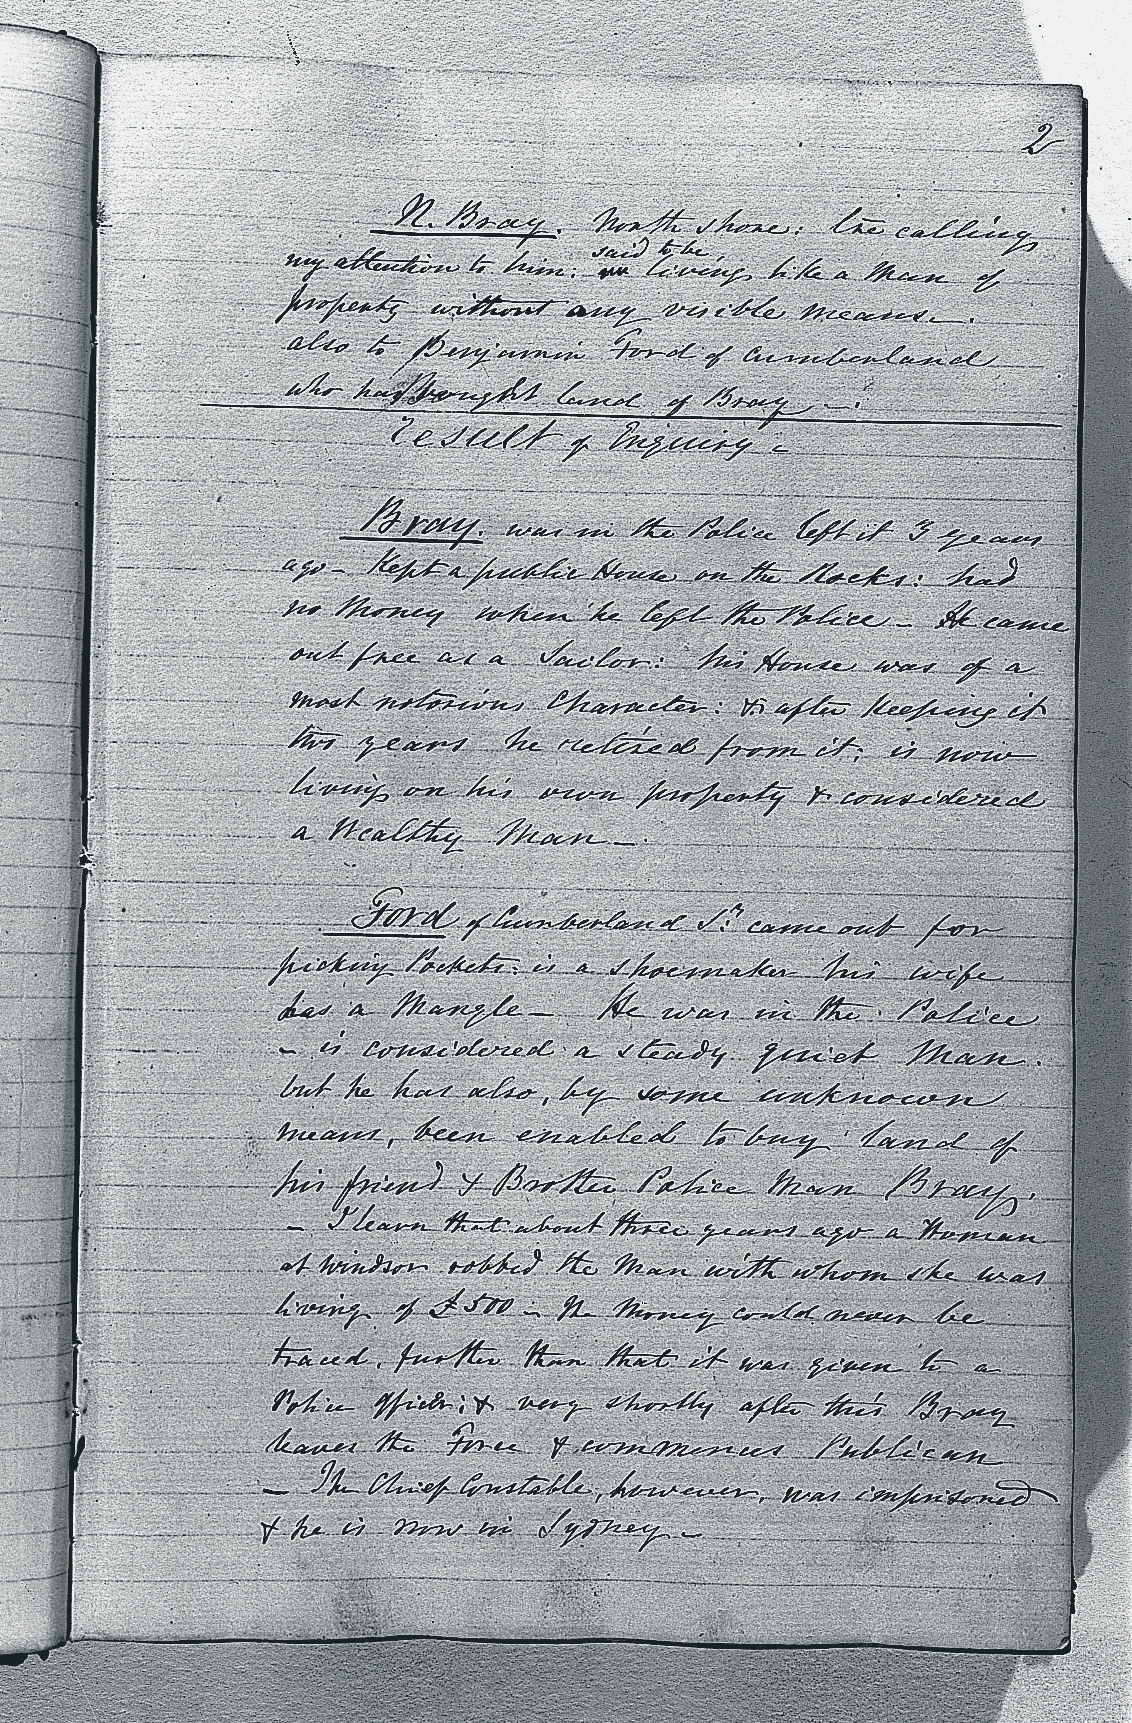 2
N. Bray. North Shore: calling
said to be
my attention to him: living like a Man of
property without any visible means_.
also to Benjamin Ford of Cumberland
who has bought land of Bray_.
Result of Enquiry_
Bray. was in the Police left it 3 years
ago_ Kept a public House on the Rocks: had
no Money when he left the Police_ He came
out free as a Sailor: his House was of a
most notorious Character: & after keeping it
two years he retired from it; is now
living on his own property & considered
a Wealthy Man_.
Ford of Cumberland St. came out for
picking Pockets: is a shoemaker his wife
has a Mangle_ He was in the Police
_ is considered a steady quiet Man.
but he has also, by some unknown
means, been enabled to buy land of
his friend & Brother Police Man Bray.
_ I learn that about three years ago a Woman
at Windsor robbed the Man with whom she was
living of £500_ the Money could never be
traced, further than that it was given to a
Police Officer; & very shortly after this Bray
leaves the Force & commences Publican
_ The Chief Constable, however, was imprisoned
& he is now in Sydney_